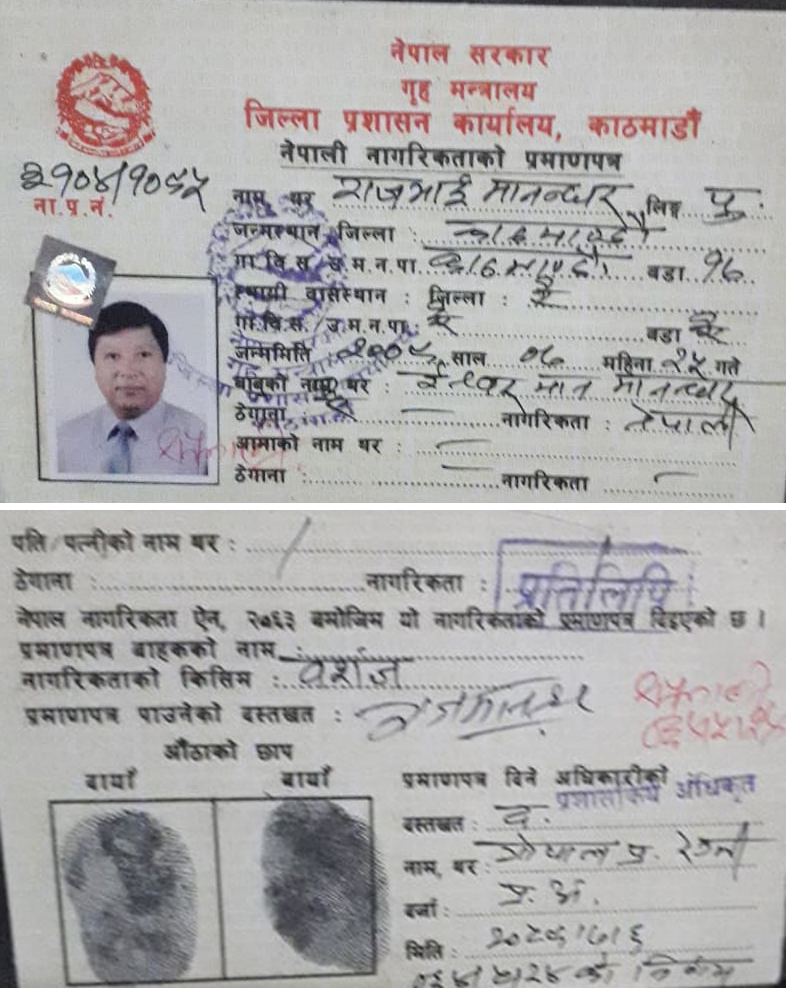 नेपाल सरकार
गृह मन्त्रालय
जिल्ला प्रशासन कार्यालय, काठमाडौं
नेपाली नागरिकताको प्रमाणपत्र
ना.प्र.नं.
नाम, थर राजभाई मानन्धर लिङ्ग पु.
जन्मस्थान जिल्ला : काठमाण्डौ
गा.वि.स./उ.म.न.पा. काठमाण्डौ वडा १७
स्थायी वासस्थान : जिल्ला : ऐ
गा.वि.स./उ.म.न.पा. ऐ वडा ऐ
जन्ममिति साल महिना २५ गते
बाबुको नाम थर : ईश्वर मान मानन्धर
ठेगाना ऐ नागरिकता : नेपाली
आमाको नाम थर :
ठेगाना : नागरिकता
पति/पत्नीको नाम थर :
ठेगाना : नागरिकता :
प्रतिलिपि
नेपाल नागरिकता ऐन, २०६३ बमोजिम यो नागरिकताको प्रमाणपत्र दिइएको छ ।
प्रमाणपत्र बाहकको नाम :
नागरिकताको किसिम : वंशज
प्रमाणपत्र पाउनेको दस्तखत :
औंठाको छाप
दायाँ बायाँ
प्रमाणपत्र दिने अधिकारीको
प्रशासकिय अधिकृत
दस्तखत : द.
नाम, थर : गोपाल प्र. रेग्मी
दर्जा : प्र. अ.
मिति :